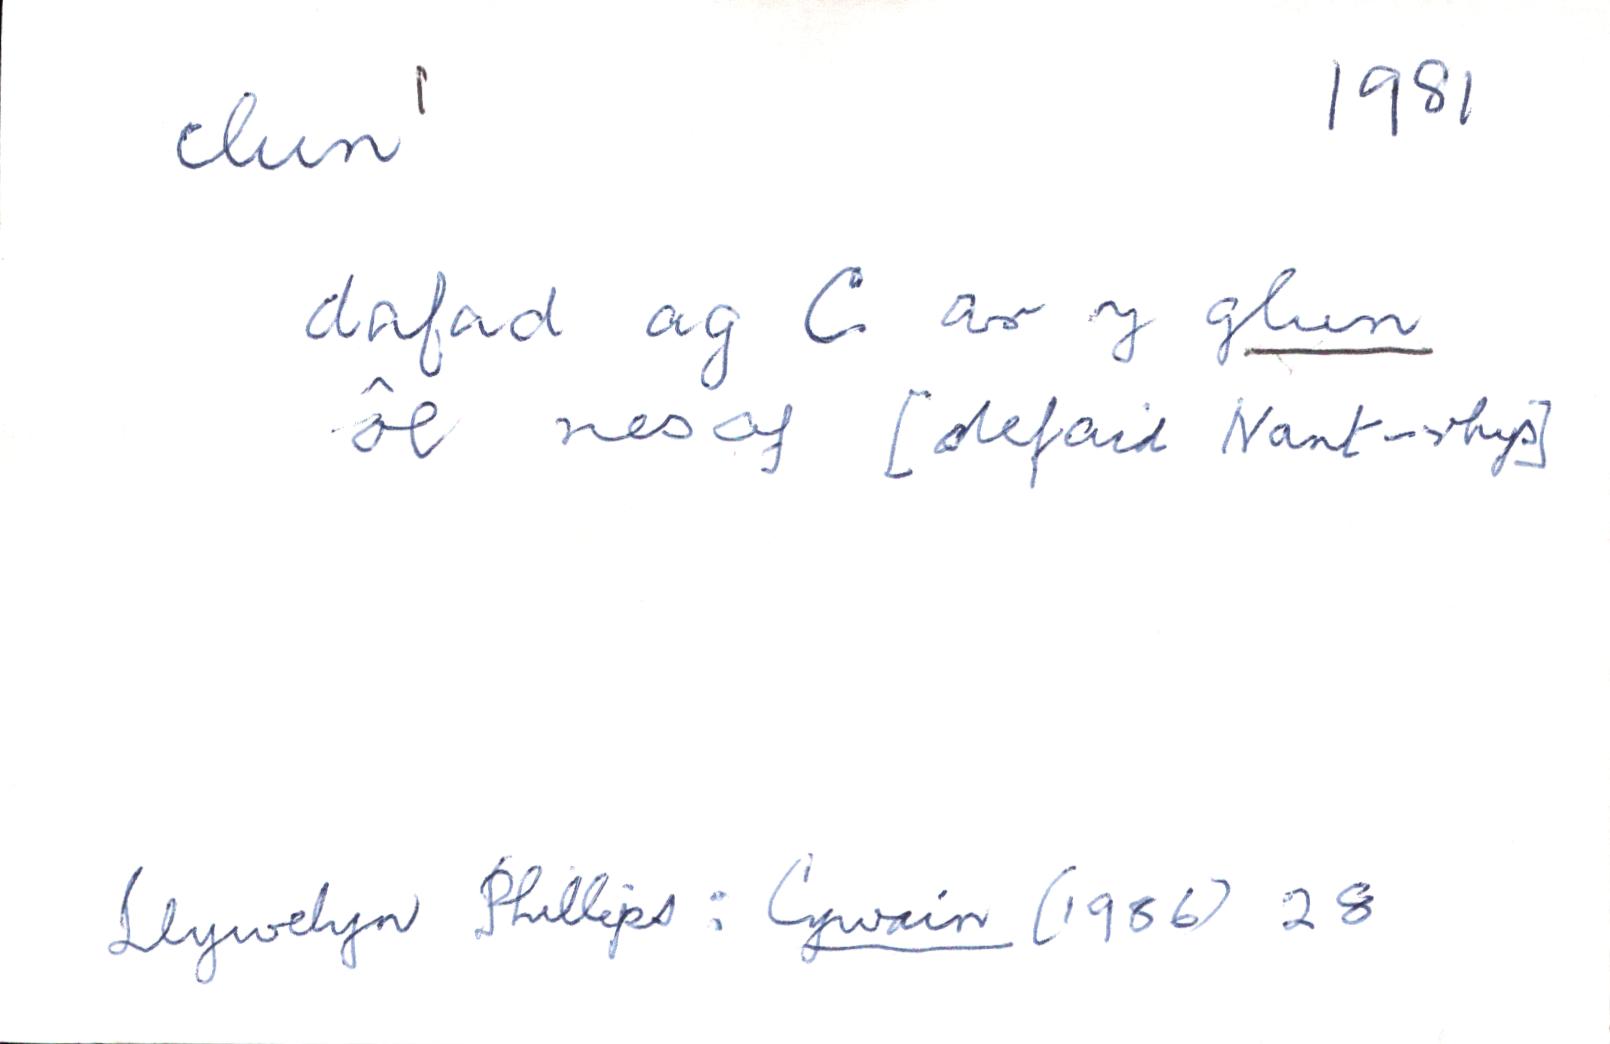 clun¹ 1981
dafad ag C ar y glun
ôl nesaf [defaid Nant-rhys]
Llywelyn Phillips: Cywain (1986) 28